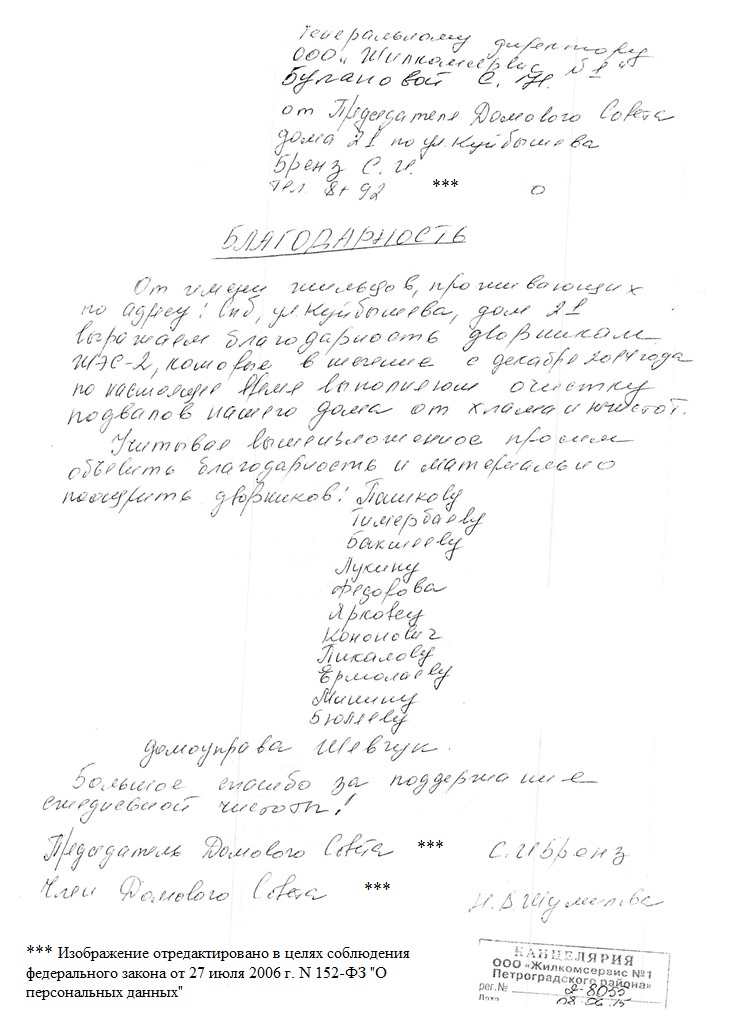 Генеральному директору
ООО "Жилкомсервис №1"
Булановой С. Н.
от Председателя Домового Совета
дома 21 по ул. Куйбышева
Бренз С. И.
Тел. 8+ 92 *** 0
БЛАГОДАРНОСТЬ
От имени жильцов, проживающих
по адресу: Спб, ул. Куйбышева, дом 21
выражаем благодарность дворникам
ЖЭС-2, которые в течение с декабре 2014 года
по настоящее время выполняют очистку
подвалов нашего дома от хлама и нечистот.
Учитывая вышеизложенное просим
объявить благодарность и материально
поощрить дворников: Пашкову
Тимербаеву
Бакшееву
Лукину
Федорова
Ярковец
Кононович
Пикалову
Ермолаеву
Минину
Бюляеву
домоуправа Шевчук.
Большое спасибо за поддержание
ежедневной чистоты!
Председатель Домового Совета *** С. И Бренз
Член Домового Совета *** Н. В. Шумилова
*** Изображение отредактировано в целях соблюдения
федерального закона от 27 июля 2006 г. N 152-ФЗ "О
персональных данных"
КАНЦЕЛЯРИЯ
ООО «Жилкомсервис №1
Петроградского района»
рег.№ 2-8055
Дата 08.06.15